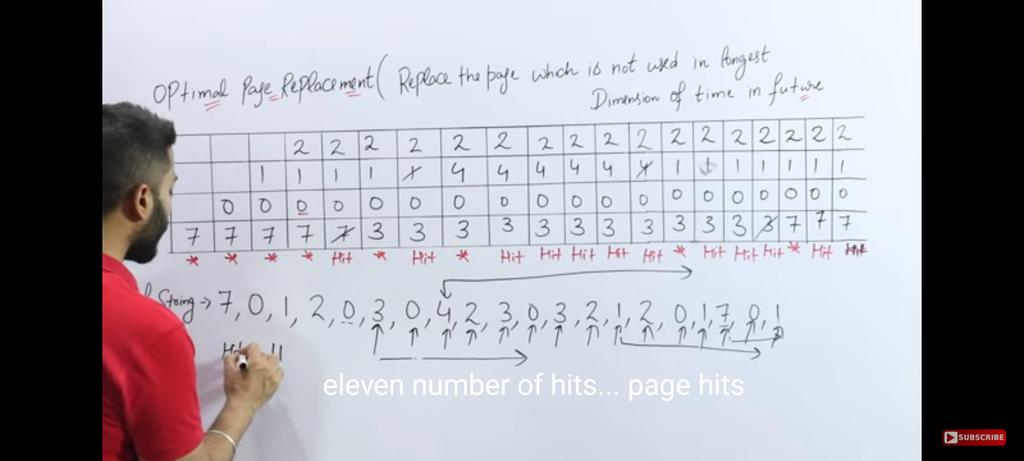 OPtimal Page Replacement ( Replace the page which is not used in longest
Dimension of time in future
2 2 2 2 2 2 2 2 2 2 2 2 2 2 2 2 2
1 1 1 1 1 4 4 4 4 4 4 1 1 1 1 1 1 1
0 0 0 0 0 0 0 0 0 0 0 0 0 0 0 0 0 0 0
7 7 7 7 7 3 3 3 3 3 3 3 3 3 3 3 3 7 7 7
* * * * Hit * Hit * Hit Hit Hit Hit Hit * Hit Hit Hit * Hit Hit
String → 7, 0, 1, 2, 0, 3, 0, 4, 2, 3, 0, 3, 2, 1, 2, 0, 1, 7, 0, 1
11
eleven number of hits... page hits
SUBSCRIBE